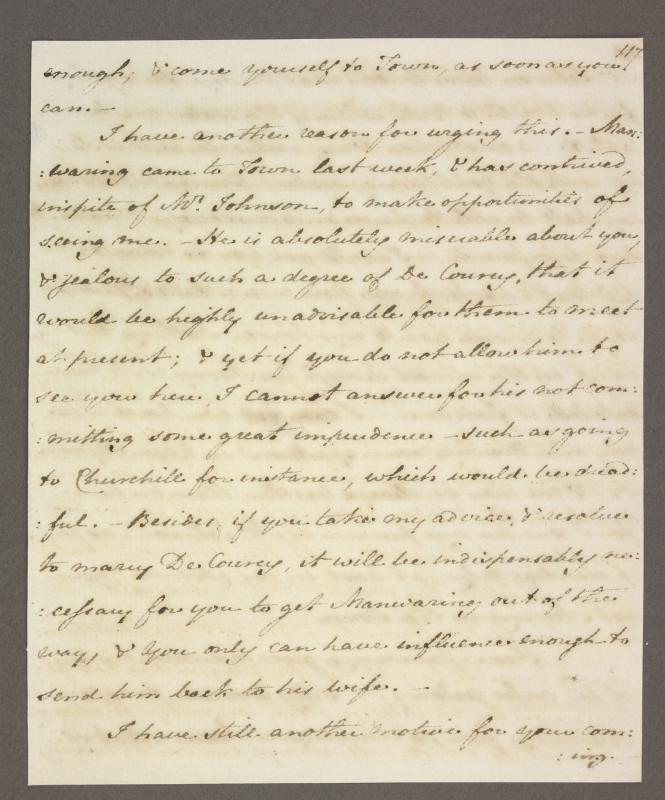 117
enough; & come yourself to Town, as soon as you
can. —
I have another reason for urging this. — Man:
: waring came to Town last week, & has contrived,
inspite of Mr. Johnson, to make opportunities of
seeing me. — He is absolutely miserable about you,
& jealous to such a degree of De Courcy, that it
would be highly unadvisable for them to meet
at present; & yet if you do not allow him to
see you here, I cannot answer for his not com:
: mitting some great imprudence — such as going
to Churchill for instance, which would be dread:
: ful. — Besides, if you take my advice, & resolve
to marry De Courcy, it will be indispensably ne:
: cessary for you to get Manwaring out of the
way, & you only can have influence enough to
send him back to his wife. —
I have still another motive for your com:
: ing.